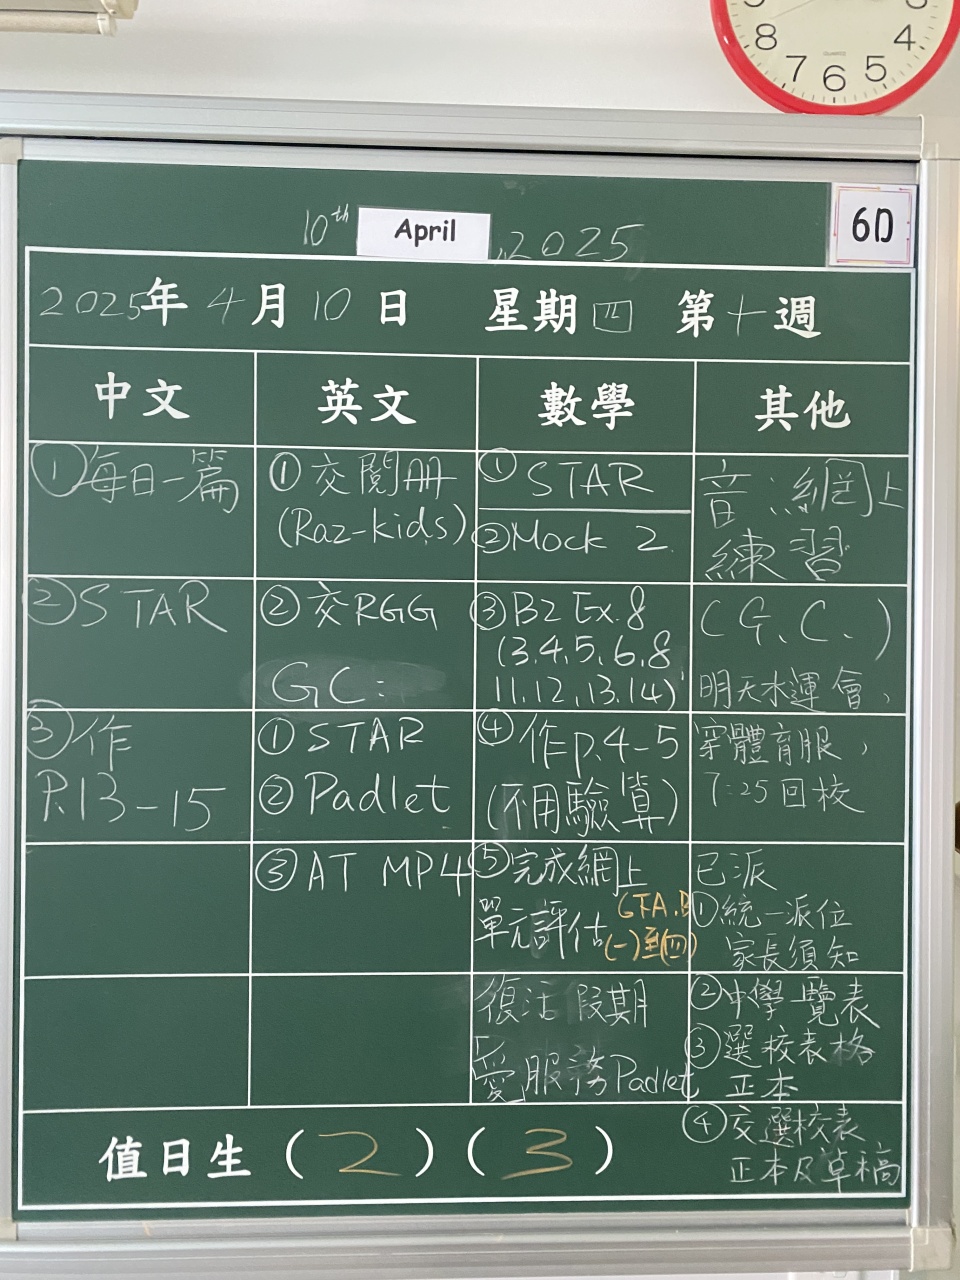 8 7 6 5 4
10th April, 2025
6D
2025年 4月10日 星期四 第十週
中文
①每日一篇
②STAR
③作
P.13-15
英文
①交閱冊
(Raz-kids)
②交RGG
GC:
①STAR
②Padlet
③AT MP4
數學
①STAR
②Mock 2
③B2 Ex.8
(3.4.5.6.8
11.12.13.14)
④作p.4-5
(不用驗算)
⑤完成網上
單元評估 6TA.B
(一)至(四)
復活假期
「愛」服務Padlet
其他
音:網上
練習
(G.C.)
明天水運會,
穿體育服,
7:25回校
已派
①統一派位
家長須知
②中學一覽表
③選校表格
正本
④交選校表
正本及草稿
值日生(2)(3)